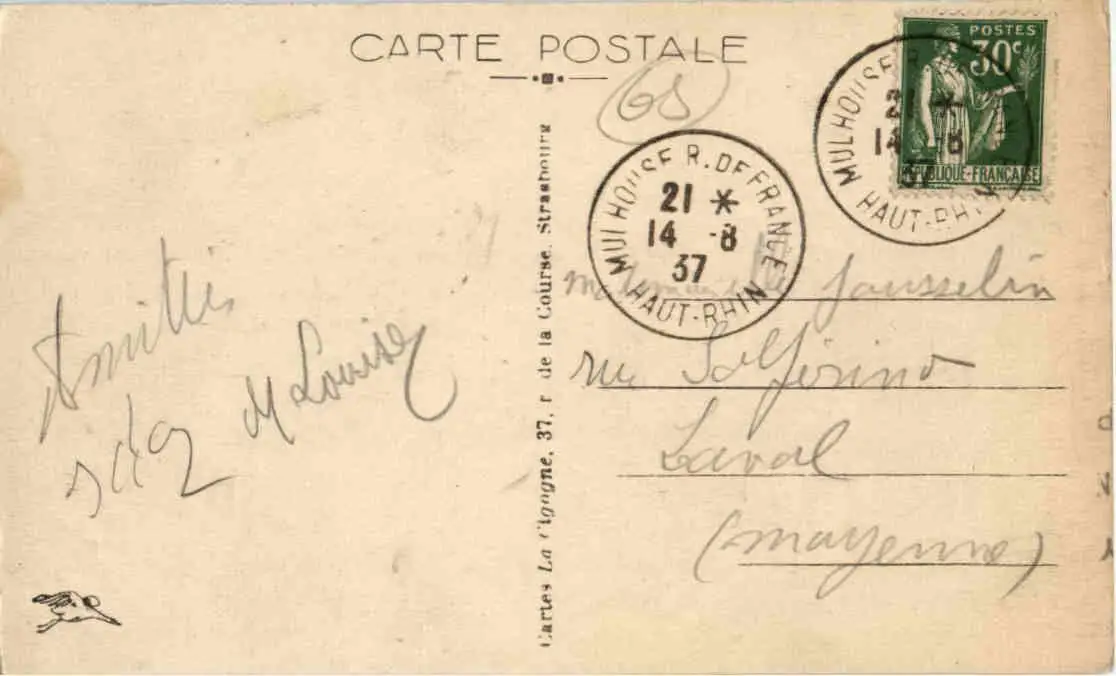 CARTE POSTALE
68
POSTES
30c
RÉPUBLIQUE-FRANÇAISE
MULHOUSE R. DE FRANCE
21 *
14 -8
37
HAUT-RHIN
MULHOUSE R. DE FRANCE
21 *
14 -8
37
HAUT-RHIN
Cartes La Cigogne, 37, r. de la Course, Strasbourg
Amitiés
M Louise
Mademoiselle Jousselin
rue Solférino
Laval
(Mayenne)